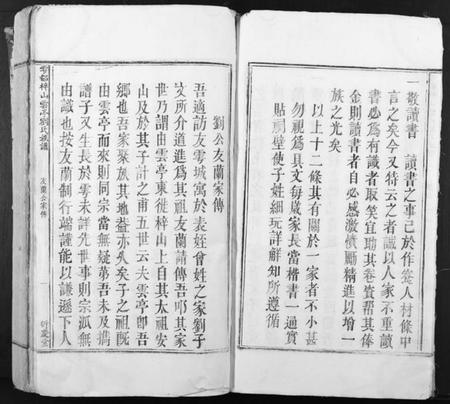 一敬讀書　讀書之事已於作養人材條中
言之矣今又特云之者誠以人家不重讀
書必為有識者取笑宜助其卷資帮其俸
金則讀書者自必感激憤勵精進以增一
族之光矣
以上十二條其有關於一家者不小甚
勿視為具文每歲家長當楷書一過實
貼祠壁使子姓細玩詳解知所遵循
劉公友蘭家傳
吾適訪友雩城寓於表姪曾姓之家劉子
文所介道進為其祖友蘭請傳吾卽其家
世乃謂由雲亭東徙梓山上自其太祖安
山及於其子計之甫五世云夫雲亭卽吾
鄉也吾家聚族其地益亦久矣子之祖旣
由雲亭而來則同宗當無疑第吾未及攜
譜子又生長於雩未詳先世事則宗派無
由識也按友蘭制行端謹能以謙遜下人
梓山雲亭劉氏族譜
友蘭公家傳